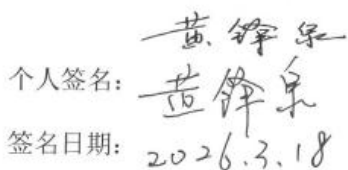 黄锋泉
个人签名：黄锋泉
签名日期：2026.3.18